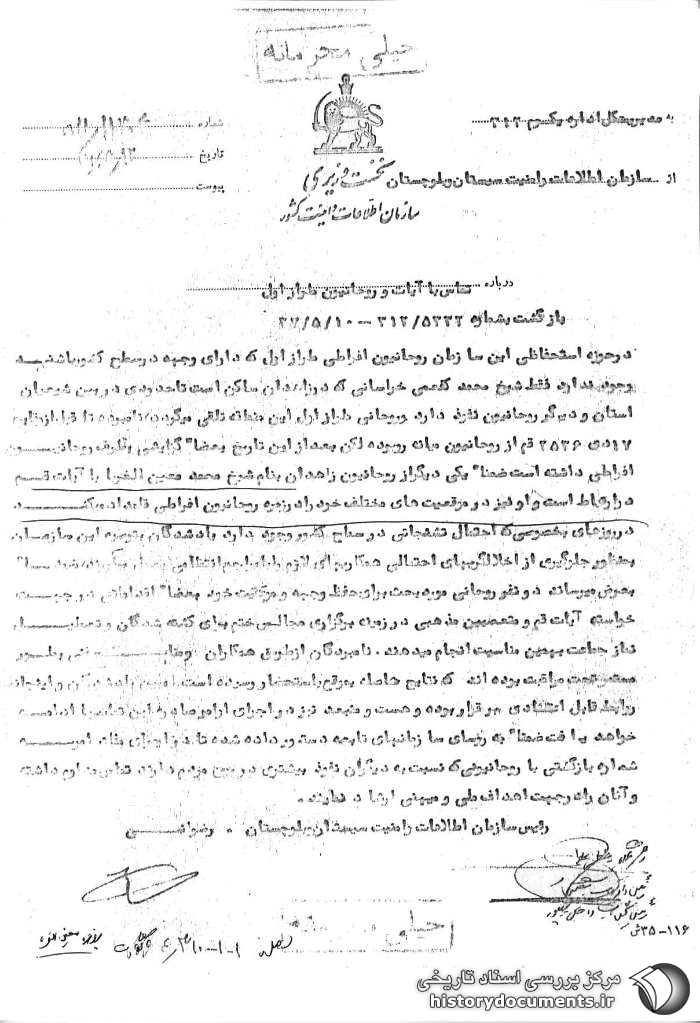 خیلی محرمانه
شماره
تاریخ
پیوست
به مدیریتکل اداره یکسوم ۳۱۲
از سازمان اطلاعات و امنیت سیستان و بلوچستان
نخست وزیری
سازمان اطلاعات و امنیت کشور
درباره تماس با آیات و روحانیون طراز اول
بازگشت بشماره ۳۱۲/۵۲۲۲ - ۳۷/۵/۱۰
در حوزه استحفاظی این سازمان روحانیون افراطی طراز اول که دارای وجهه در سطح کشور باشند
وجود ندارد فقط شیخ محمد کفعمی خراسانی که در زاهدان ساکن است تا حدودی در بین شیعیان
استان و دیگر روحانیون نفوذ دارد و روحانی طراز اول این منطقه تلقی میگردد نامبرده تا قبل از
۱۷ دی ۲۵۳۶ قم از روحانیون میانه رو بوده لکن بعد از این تاریخ بعضا" گرایشی بطرف روحانیون
افراطی داشته است ضمنا" یکی دیگر از روحانیون زاهدان بنام شیخ محمد معین الغربا با آیات قم
در ارتباط است و او نیز در موقعیت های مختلف خود را در زمره روحانیون افراطی قلمداد میکند
در روزهای بخصوصی که احتمال تشنجاتی در سطح کشور وجود دارد یاد شدگان بتوصیه این سازمان
بمنظور جلوگیری از اخلالگریهای احتمالی همکاریهای لازم را با مراجع انتظامی بعمل میآورند ضمنا"
بعرض میرساند دو نفر روحانی مورد بحث برای حفظ وجهه و موقعیت خود بعضا" اقداماتی در جهت
خواسته آیات قم و متعصبین مذهبی در زمینه برگزاری مجالس ختم برای کشته شدگان و تعطیل
نماز جماعت بهمین مناسبت انجام میدهند . نامبردگان از طریق همکاران بطور
مستمر تحت مراقبت بوده اند که نتایج حاصله بموقع باستحضار رسیده است یاد شدگان و اینجانب
روابط قابل اعتمادی برقرار بوده و هست و منبعد نیز در اجرای اوامر صادره این تماسها ادامه
خواهد یافت ضمنا" به روسای سازمانهای تابعه دستور داده شده تا در اجرای مفاد امریه
شماره بازگشتی با روحانیونی که نسبت به دیگران نفوذ بیشتری در بین مردم دارند تماس مداوم داشته
و آنان را در جهت اهداف ملی و میهنی ارشاد نمایند .
رئیس سازمان اطلاعات و امنیت سیستان و بلوچستان . رضوانی
۳۵-۱۱۶ش
خیلی محرمانه
مرکز بررسی اسناد تاریخی
historydocuments.ir